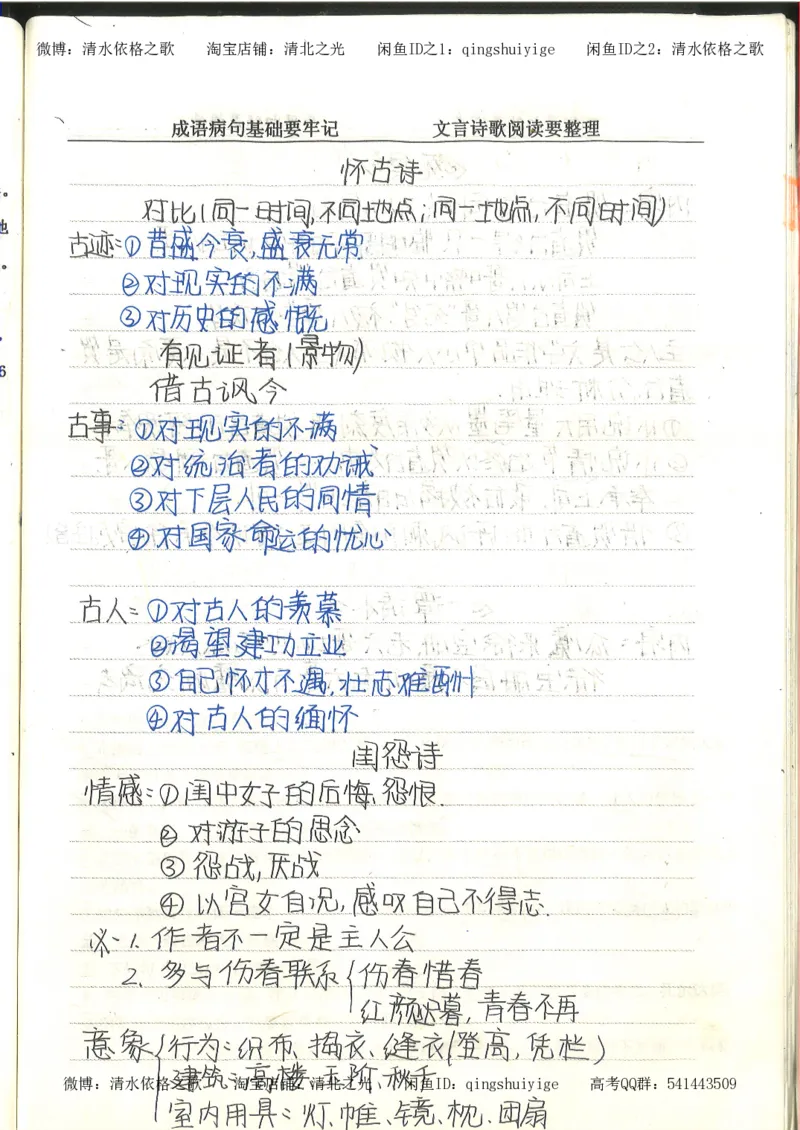 微博：清水依格之歌 淘宝店铺：清北之光 闲鱼ID之1：qingshuiyige 闲鱼ID之2：清水依格之歌
成语病句基础要牢记 文言诗歌阅读要整理
怀古诗
对比(同一时间,不同地点;同一地点,不同时间)
古迹:①昔盛今衰,盛衰无常
②对现实的不满
③对历史的感慨
有见证者(景物)
借古讽今
古事:①对现实的不满
②对统治者的劝诫
③对下层人民的同情
④对国家命运的忧心
古人:①对古人的羡慕
②渴望建功立业
③自己怀才不遇,壮志难酬
④对古人的缅怀
闺怨诗
情感:①闺中女子的后悔、怨恨.
②对游子的思念
③怨战,厌战
④以宫女自况,感叹自己不得志.
1.作者不一定是主人公
2.多与伤春联系{伤春惜春
红颜迟暮,青春不再
意象{行为:织布、捣衣、缝衣(登高,凭栏)
建筑:高楼、玉阶、秋千
微博：清水依格之歌 淘宝店铺：清北之光 闲鱼ID：qingshuiyige 高考QQ群：541443509
室内用具:灯、帷、镜、枕、团扇